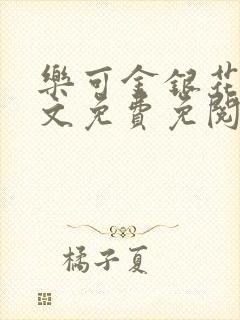 樂可金銀花
文免費免閱
橘子夏